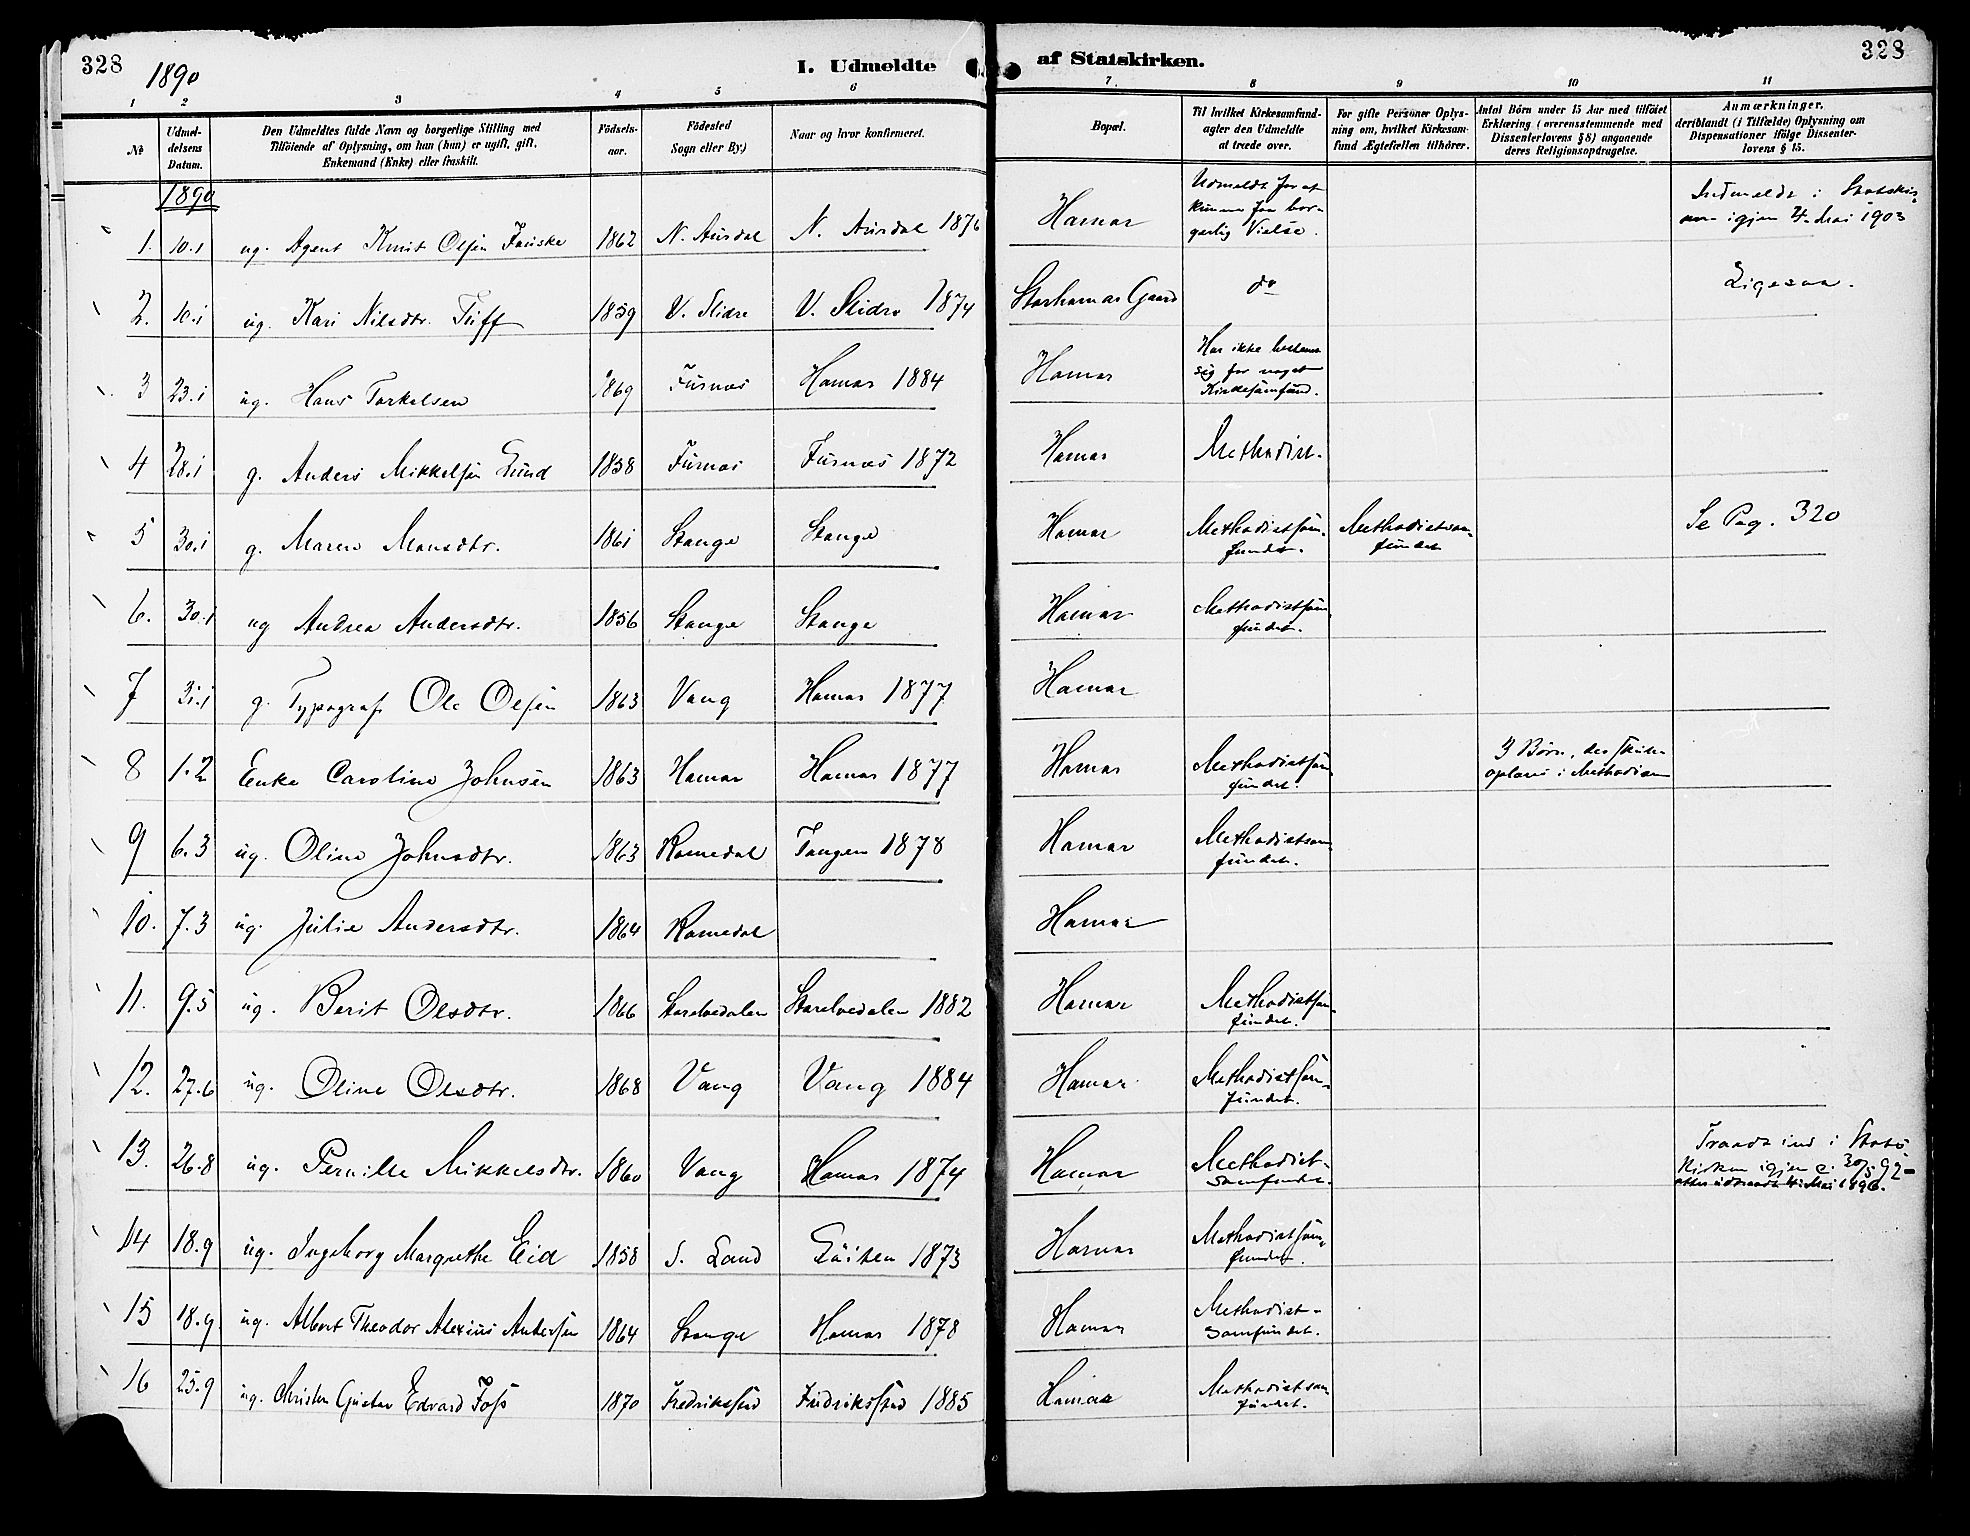 328 1890 I. Udmeldte af Statskirken. 328
1 2 3 4 5 6 7. 8 9 10 11
№ Udmeldelsens Datum. Den Udmeldtes fulde Navn og borgerlige Stilling med Tilföiende af Oplysning, om han (hun) er ugift, gift, Enkemand (Enke) eller fraskilt. Födselsaar. Födested Sogn eller By.) Naar og hvor konfirmeret. Bopæl. Til hvilket Kirkesamfund agter den Udmeldte at træde over. For gifte Personer Oplysning om, hvilket Kirkesamfund Ægtefællen tilhörer. Antal Börn under 15 Aar med tilföiet Erklæring (overensstemmende med Dissenterlovens § 8) angaaende deres Religionsopdragelse. Anmærkninger, deriblandt (i Tilfælde) Oplysning om Dispensationer ifölge Dissenterlovens § 15.
1890
1. 10.1 ug. Agent Knut Olsen Fauske 1862 N. Aurdal N. Aurdal 1876 Hamar Udmeldt for at kunne faa borgerlig Vielse. Indmeldt i Statskirken igjen 4. Mai 1903
2. 10.1 ug. Kari Nilsdtr. Tuff 1859 V. Slidre V. Slidre 1874 Storhamar Gaard do Ligesaa.
3 23.1 ug. Hans Torkelsen 1869 Furnæs Hamar 1884 Hamar Har ikke bestemt sig for noget Kirkesamfund.
4 28.1 g. Anders Mikkelsen Lund 1858 Furnæs Furnæs 1872 Hamar Methodist.
5 30.1 g. Maren Monsdtr. 1861 Stange Stange Hamar Methodistsamfundet. Methodistsamfundet Se Pag. 320
6. 30.1 ug Andrea Andersdtr. 1856 Stange Stange Hamar Methodistsamfundet.
7 31.1 g. Typograf Ole Olsen 1863 Vang Hamar 1877 Hamar
8 1.2 Enke Caroline Johnsen 1863 Hamar Hamar 1877 Hamar Methodistsamfundet. 3 Børn, der skulle oplæres i Methodism
9 6.3 ug. Oline Johnsdtr. 1863 Romedal Tangen 1878 Hamar Methodistsamfundet.
10. 7.3 ug. Julie Andersdtr. 1864 Romedal Hamar
11. 9.5 ug. Berit Olsdtr. 1866 Storelvedalen Storelvedalen 1882 Hamar Methodistsamfundet.
12. 27.6 ug. Oline Olsdtr. 1868 Vang Vang 1884 Hamar Methodistsamfundet.
13. 26.8 ug. Pernille Mikkelsdtr. 1860 Vang Hamar 1874 Hamar Methodistsamfundet. Traadt ind i Statskirken igjen 30/5 92 atter udtraadt 4. Mai 1896.
14 18.9 ug. Ingeborg Margrethe Eid 1858 S. Land Gjøiten 1873 Hamar Methodistsamfundet.
15 18.9 ug. Albert Theodor Alexius Andersen 1864 Stange Hamar 1878 Hamar Methodistsamfundet.
16 25.9 ug. Christen Gustav Edvard Foss 1870 Fredriksstad Fredriksstad 1885 Hamar Methodistsamfundet.